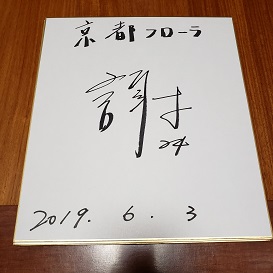 京都フローラ
24
2019. 6. 3